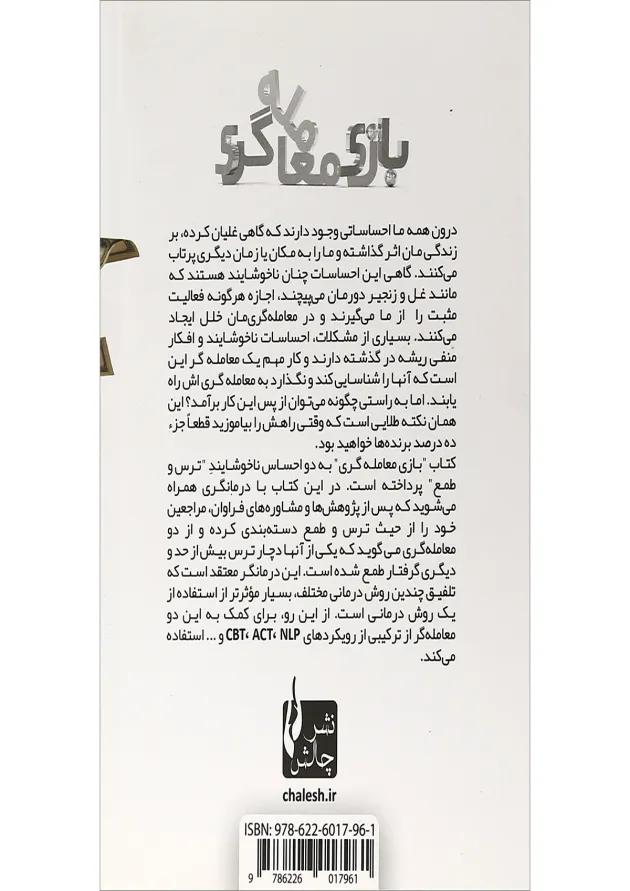 بازی معامله گری
درون همه ما احساساتی وجود دارند که گاهی غلیان کرده، بر
زندگی مان اثر گذاشته و ما را به مکان یا زمان دیگری پرتاب
می‌کنند. گاهی این احساسات چنان ناخوشایند هستند که
مانند غل و زنجیر دورمان می‌پیچند، اجازه هرگونه فعالیت
مثبت را از ما می‌گیرند و در معامله‌گری‌مان خلل ایجاد
می‌کنند. بسیاری از مشکلات، احساسات ناخوشایند و افکار
منفی ریشه در گذشته دارند و کار مهم یک معامله گر این
است که آنها را شناسایی کند و نگذارد به معامله گری اش راه
یابند. اما به راستی چگونه می‌توان از پس این کار برآمد؟ این
همان نکته طلایی است که وقتی راهش را بیاموزید قطعاً جزء
ده درصد برنده‌ها خواهید بود.
کتاب "بازی معامله گری" به دو احساس ناخوشایندِ "ترس و
طمع" پرداخته است. در این کتاب با درمانگری همراه
می‌شوید که پس از پژوهش‌ها و مشاوره‌های فراوان، مراجعین
خود را از حیث ترس و طمع دسته‌بندی کرده و از دو
معامله‌گری می گوید که یکی از آنها دچار ترس بیش از حد و
دیگری گرفتار طمع شده است. این درمانگر معتقد است که
تلفیق چندین روش درمانی مختلف، بسیار مؤثرتر از استفاده از
یک روش درمانی است. از این رو، برای کمک به این دو
معامله‌گر از ترکیبی از رویکردهای CBT، ACT، NLP و ... استفاده
می‌کند.
نشر
چالش
chalesh.ir
ISBN: 978-622-6017-96-1
9 786226 017961